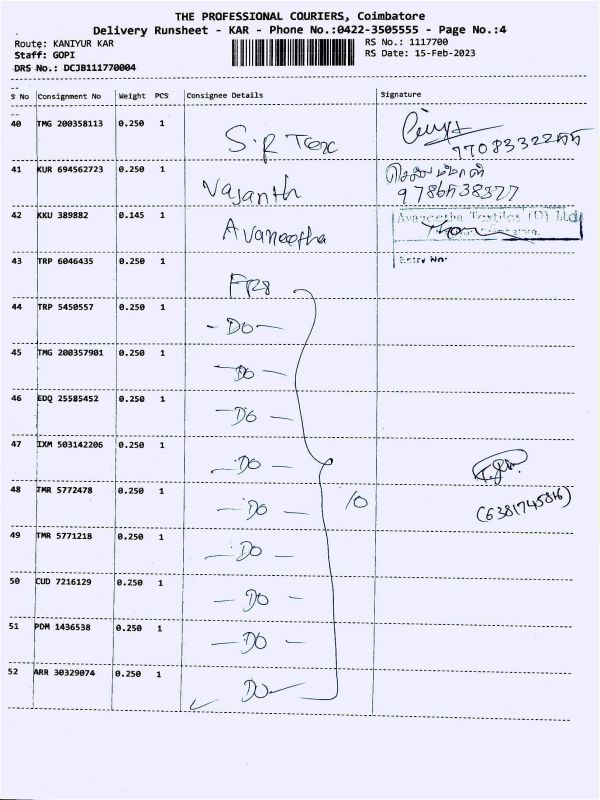 THE PROFESSIONAL COURIERS, Coimbatore
Delivery Runsheet - KAR - Phone No.:0422-3505555 - Page No.:4
Route: KANIYUR KAR RS No.: 1117700
Staff: GOPI RS Date: 15-Feb-2023
DRS No.: DCJB111770004
S No Consignment No Weight PCS Consignee Details Signature
40 TMG 200358113 0.250 1 S.R Tex
77083322
41 KUR 694562723 0.250 1 Vasanth
42 KKU 389882 0.145 1 Avaneetha Avaneetha Textiles (P) Ltd
Entry No:
43 TRP 6046435 0.250 1
44 TRP 5450557 0.250 1 - DO -
45 TMG 200357901 0.250 1 - DO -
46 EDQ 25585452 0.250 1 - DO -
47 IXM 503142206 0.250 1 - DO -
48 TMR 5772478 0.250 1 - DO - 10
(6381745816)
49 TMR 5771218 0.250 1 - DO -
50 CUD 7216129 0.250 1 - DO -
51 PDM 1436538 0.250 1 - DO -
52 ARR 30329074 0.250 1 DO